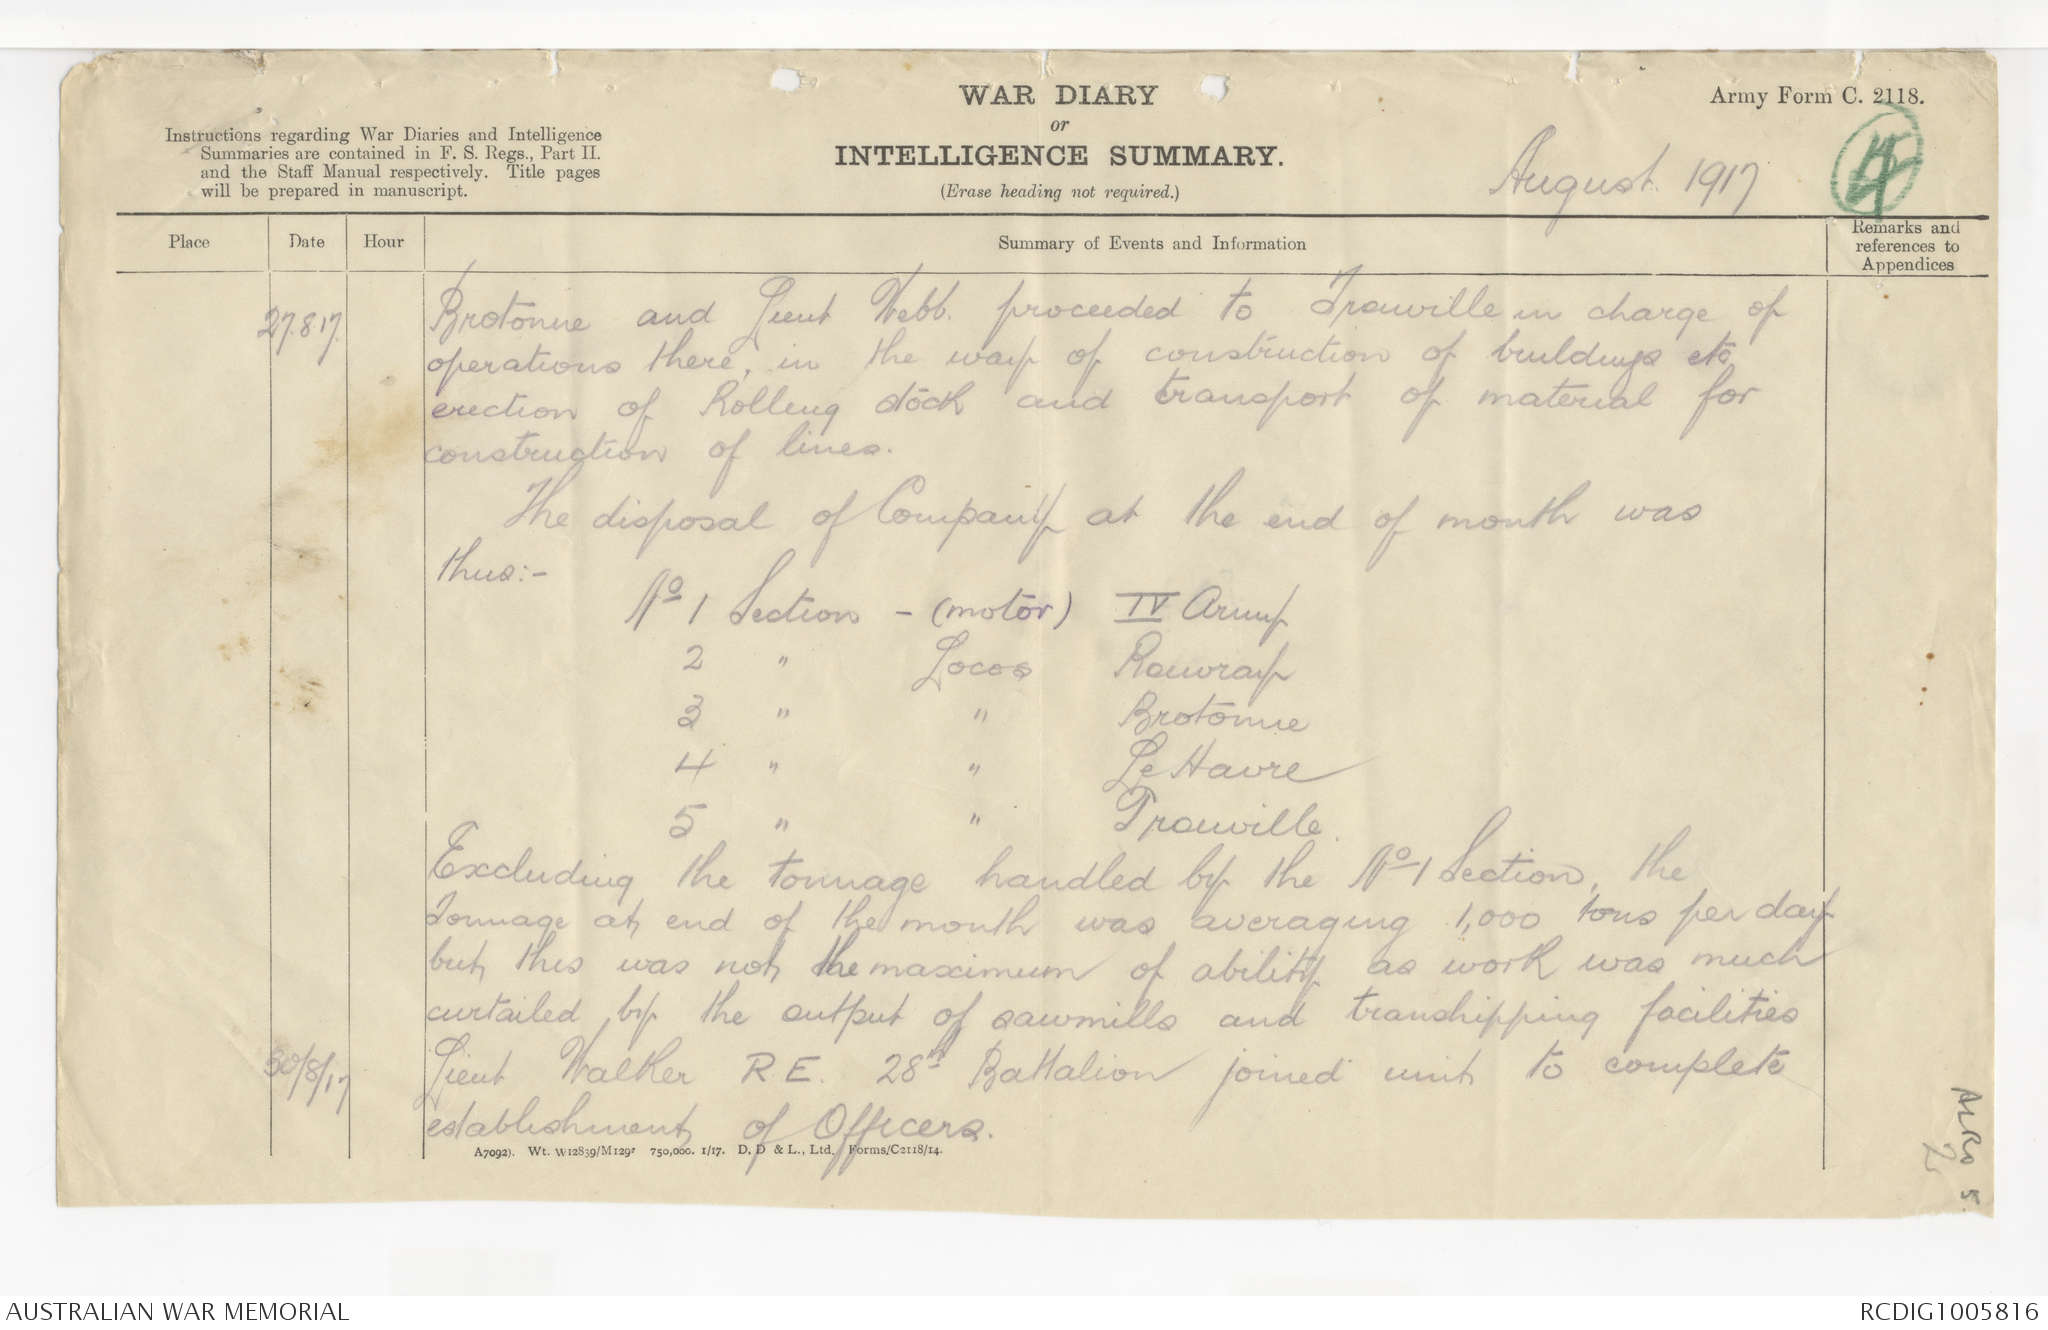 WAR DIARY
or
INTELLIGENCE SUMMARY.
(Erase heading not required.)
Army Form C. 2118.
Instructions regarding War Diaries and Intelligence
Summaries are contained in F. S. Regs., Part II.
and the Staff Manual respectively. Title pages
will be prepared in manuscript.
August 1917
Place
Date
Hour
Summary of Events and Information
Remarks and
references to
Appendices
27.8.17. Brotonne and Lieut Webb. proceeded to Trouville in charge of
operations there, in the way of construction of buildings etc
erection of Rolling stock and transport of material for
construction of lines.
The disposal of Company at the end of month was
thus:-
No 1 Section - (motor) IV Army
2 " Locos Rouvray
3 " " Brotonne
4 " " Le Havre
5 " " Trouville.
Excluding the tonnage handled by the No 1 Section, the
Tonnage at end of the month was averaging 1,000 tons per day
but this was not the maximum of ability as work was much
curtailed by the output of sawmills and transhipping facilities
30/8/17 Lieut Walker R.E. 28th Battalion joined unit to complete
establishment of Officers.
A7092). Wt. W12839/M1297 750,000. 1/17. D. D & L., Ltd. Forms/C2118/14.
ALRO 5
2
AUSTRALIAN WAR MEMORIAL
RCDIG1005816